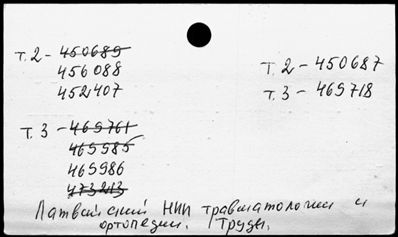 т. 2 - 450685
456088
452407
т. 3 - 465761
465585
465986
473213
т. 2 - 450687
т. 3 - 465718
Латвийский НИИ травматологии и
ортопедии. Труды.